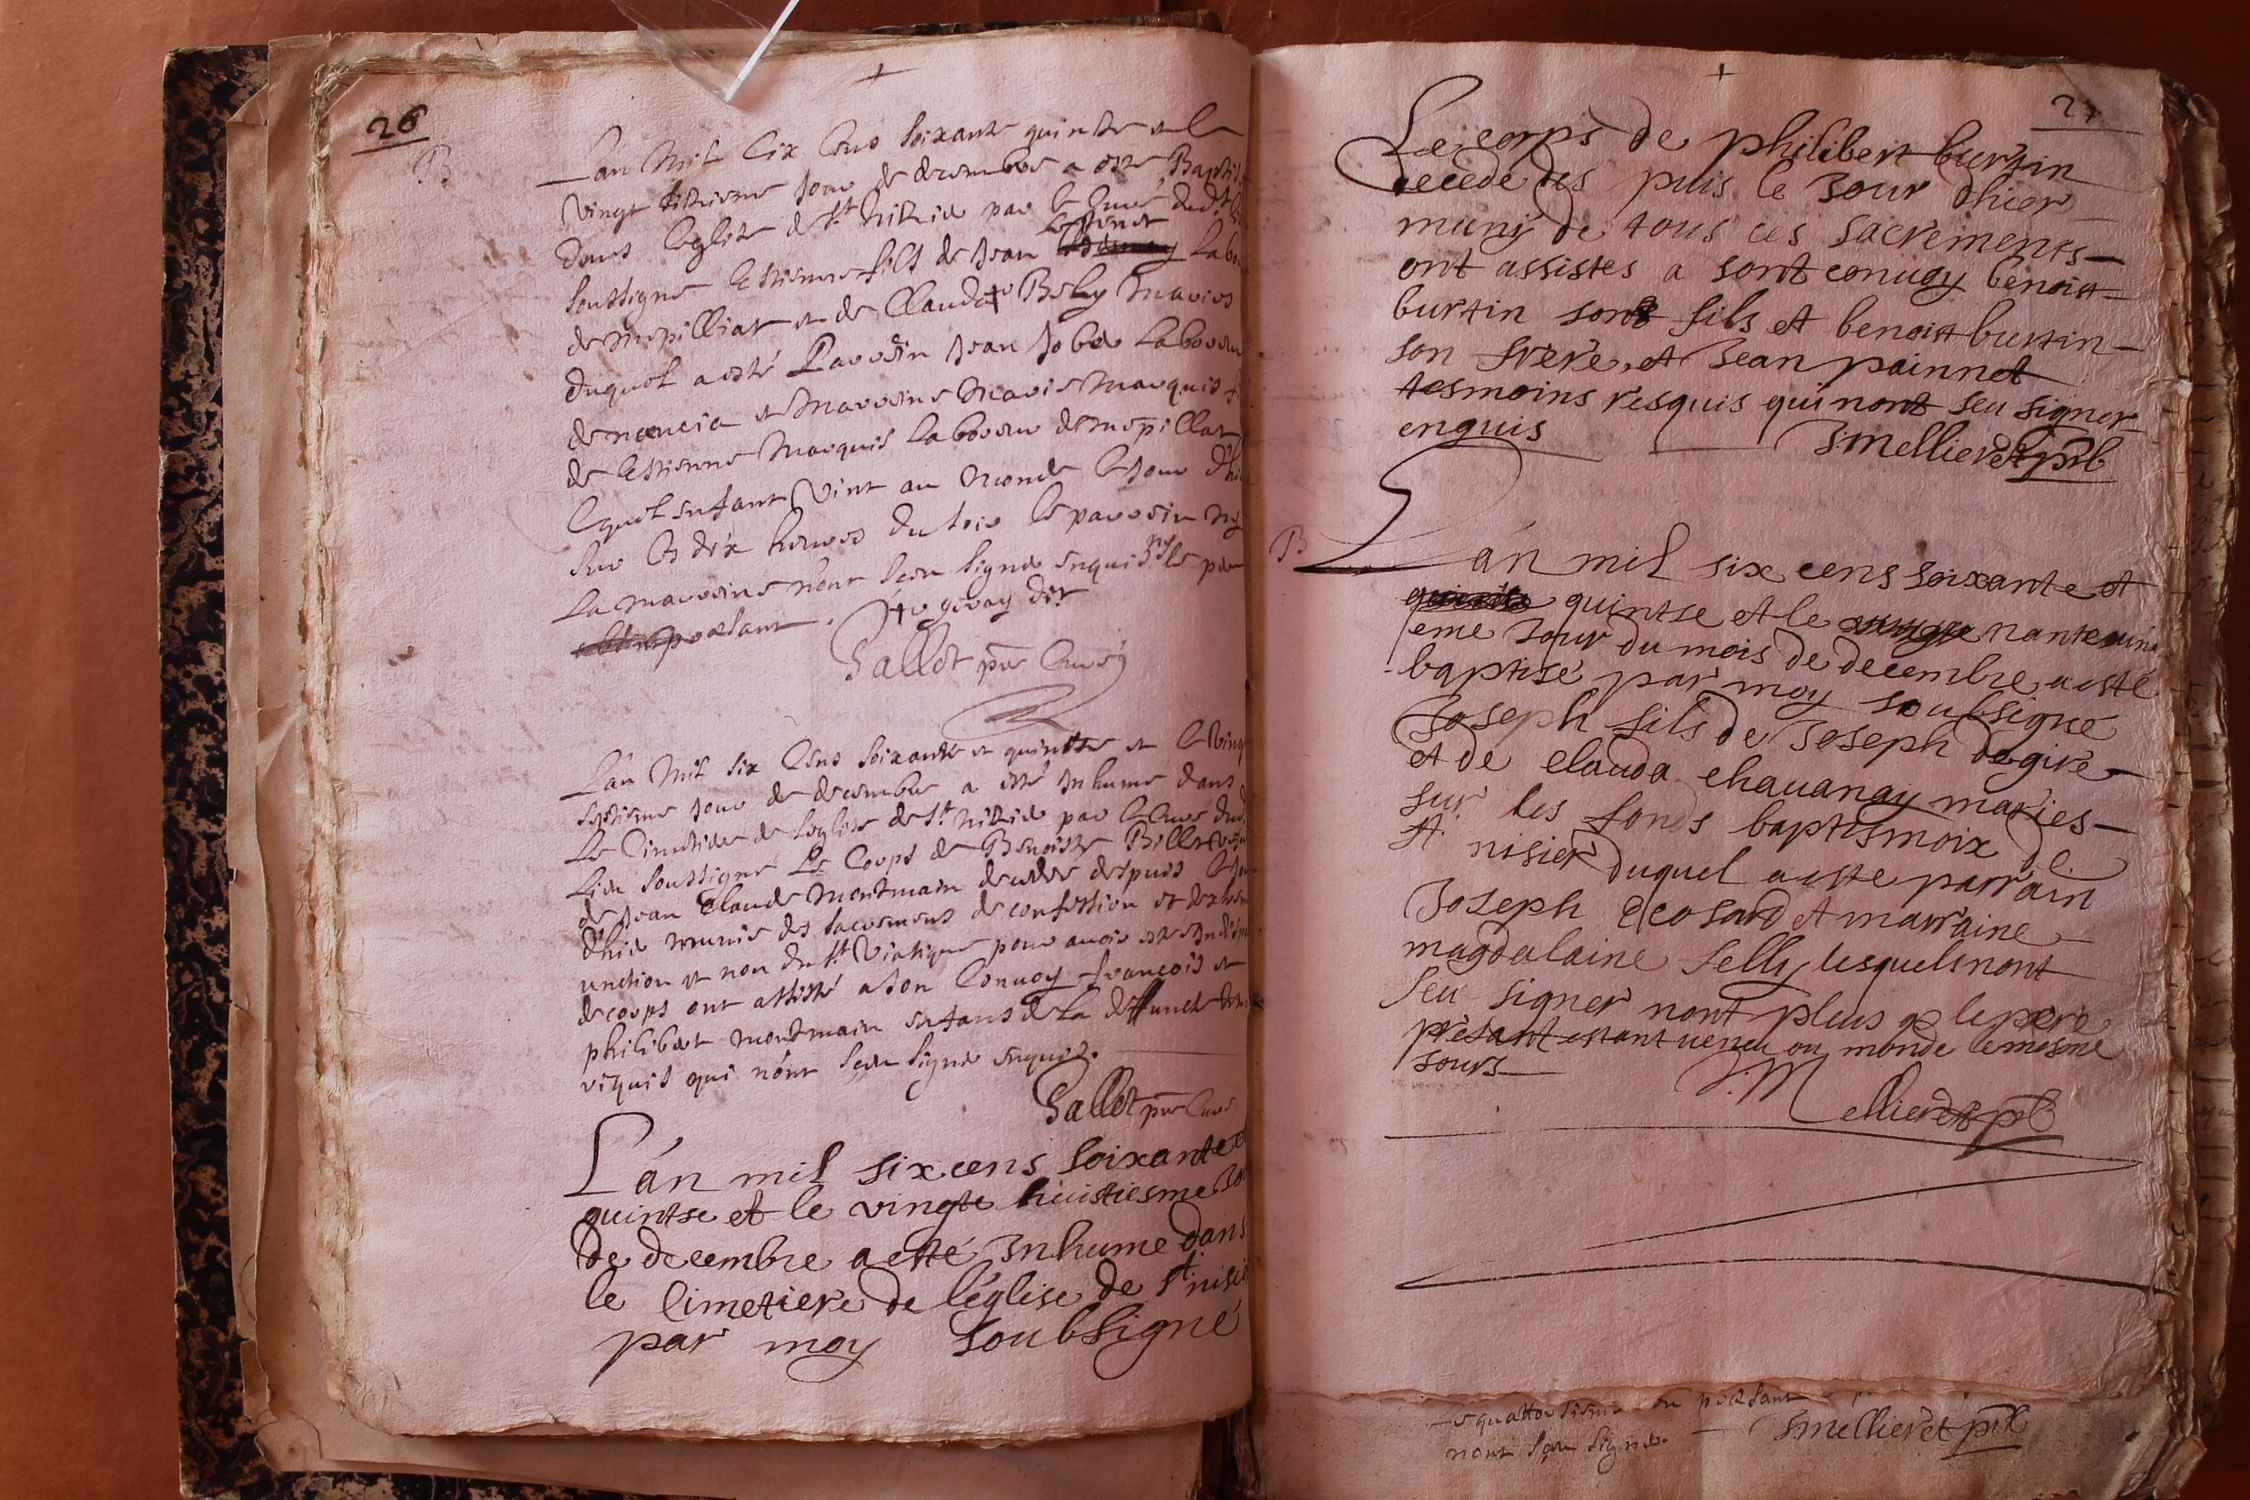 26
B
L'an Mil six Cens soixante quinze et le
vingt sixieme jour de decembre a esté Baptis
dans l'eglise de St Nizier par le Curé dudt
soussigné Estienne fils de Jean Labou
de Mepilliat et de Clauda Bely Maries
duquel a esté Parrain Jean Labour
et Marraine Marie Marquis
de Estienne Marquis Laboureur de Mepillat
lequel enfant vint au Monde le jour d'hi
sur les dix heures du soir le parrain ny
La Marraine n'ont sceu signer enquis ny le pere
presant.
Gallet ptre Curé
L'an Mil six Cens soixante et quintze et le vingt
septieme jour de decembre a esté Inhumé dans
Le Cimetiere de l'eglise de St Nizier par le Curé dud
Lieu soussigné Le Corps de Benoiste
de Jean Claude Montmain decedee despuis le jou
d'hier munie des sacremens de confession et d'extreme
unction et non du St Viatique pour avoir esté
de corps ont assisté a son Convoy francois et
philibert Montmain enfans de La deffuncte
requis qui n'ont sceu signer enquis.
Gallet ptre Curé
L'an mil six cens soixante et
quintse et le vingte huistiesme Jo
de decembre a esté Inhume dans
le Cimetiere de l'église de St nisie
par moy soubsigné
27
Le corps de philibert burtin
decede des puis le Jour d'hier
muny de tous ces sacrements
ont assistes a sont convoy benoist
burtin sont fils et benoist burtin
son frere et Jean painnet
tesmoins resquis qui nont seu signer
enquis Jmellieret ptb
B
L'an mil six cens soixante et
quintse et le
eme Jour du mois de decembre a esté
baptisé par moy soubsigné
Joseph fils de Joseph degire
et de clauda chauanay maries
sur les fonds baptismaix de
st nisier duquel a este parrain
Joseph et marraine
magdalaine felly lesquels nont
seu signer nont plus q le pere
présant estant uenu ou monde le mesme
Jours
J. Mellieret ptb
presant
nont sceu signer. Jmellieret ptb